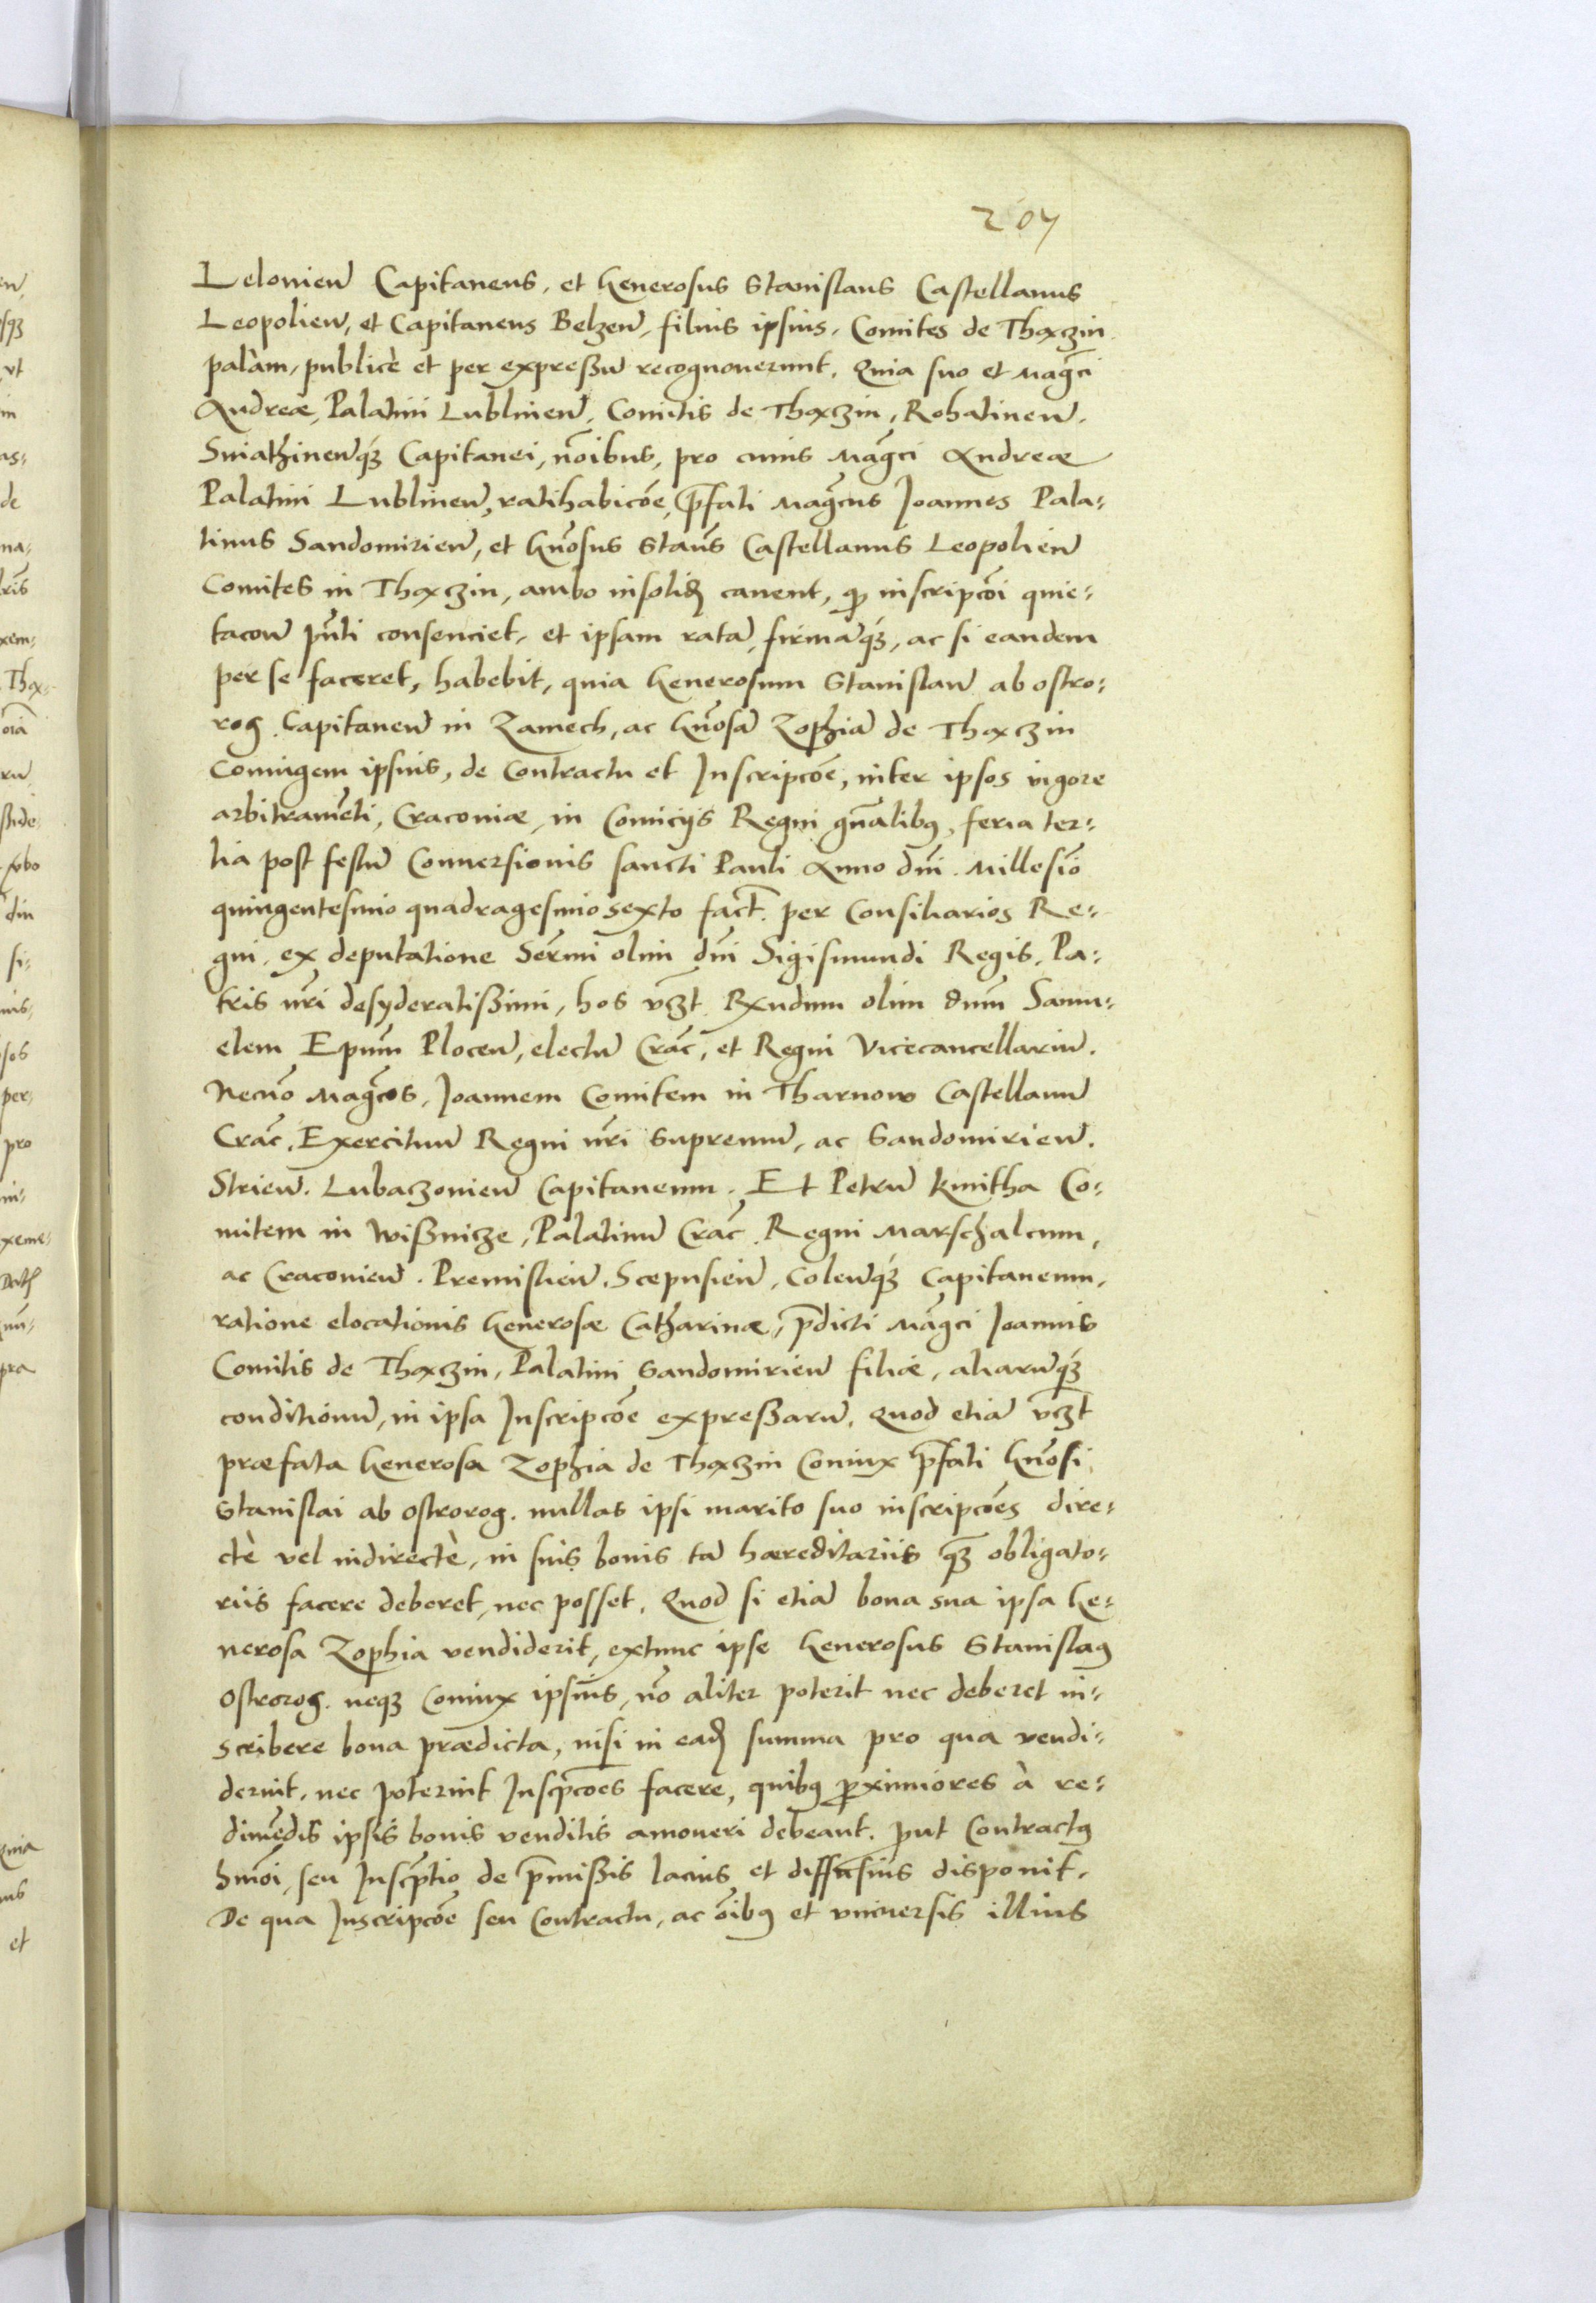 207
Lelouien̄ Capitaneus, et Generosus Stanislaus Castellanus
Leopolien̄, et Capitaneus Belzen̄, filius ipsius, Comites de Thaxczin
palàm, publicè et per expressū recognouerunt, Quia suo et Magc̄i
Andreæ, Palatini Lublinen̄, Comitis de Thaxczin, Rohatinen̄.
Sniathinen̄q̄ Capitanei, nōibus, pro cuius Magc̄i Andreæ
Palatini Lublinen̄, ratihabicōe, p̄fati Magc̄us Joannes Pala-
tinus Sandomirien̄, et Gn̄osus Stan̄s Castellanus Leopolien̄
Comites in Thaxczin, ambo insolid̄ cauent, q̄ inscripcōi quie-
tacōn p̄nti consenciet, et ipsam ratā, firmāq̄, ac si eandem
per se faceret, habebit, quia Generosum Stanislaū ab ostro-
rog Capitaneū in Zamech, ac Gn̄osā Zophiā de Thaxczin
Coniugem ipsius, de Contractu et Inscripcōe, inter ipsos vigore
arbitramēti, Craconiæ, in Comicijs Regni gn̄alibȝ, feria ter-
tia post festū Conuersionis sancti Pauli Anno dn̄i Millesio
quingentesimo quadragesimosexto fact. per Consiliarios Re-
gni, ex deputatione Serm̄i olim dn̄i Sigismundi Regis, Pa-
tris nr̄i desyderatissimi, hos vcȝt Rx̄ndum olim dnum Samu-
elem Epum̄ Plocen̄, electū Crac̄, et Regni Vicecancellariū.
Necnō Magc̄os, Joannem Comitem in Tharnow Castellanū
Crac̄, Exercituū Regni nr̄i Supremū, ac Sandomirien̄.
Strien̄. Lubaczouien̄ Capitaneum. Et Petrū Kmitha Co-
mitem in Wissnicze, Palatinū Crac̄. Regni Marschalcum,
ac Cracouien̄. Premislien̄. Scepusien̄, Colen̄q̄ Capitaneum,
ratione elocationis Generosæ Catharinæ, p̄dicti Magc̄i Joannis
Comitis de Thaxczin, Palatini Sandomirien̄ filiæ, aliarūq̄
conditionū, in ipsa Inscripcōe expressarū, Quod etiā vcȝt
præfata Generosa Zophia de Thaxczin Coniux p̄fati Gn̄osi
Stanislai ab Ostrorog, nullas ipsi marito suo inscripcōes dire-
ctè vel indirectè, in suis bonis tā hæreditariis q̄ȝ obligato-
riis facere deberet, nec posset, Quod si etiā bona sua ipsa Ge-
nerosa Zophia vendiderit, extunc ipse Generosus Stanislaȝ
Ostrorog neqȝ Coniux ipsius, nō aliter poterit nec deberet in-
scribere bona prædicta, nisi in ead̄ summa pro qua vendi-
derint, nec poterint Inscp̄coēs facere, quibȝ p̄ximiores à re-
dimēdis ipsis bonis venditis amoueri debeant, put Contractȝ
hmōi, seu Inscp̄tio de p̄missis lacius et diffusius disponit.
De qua Inscripcōe seu Contractu, ac ōibȝ et vniuersis illius